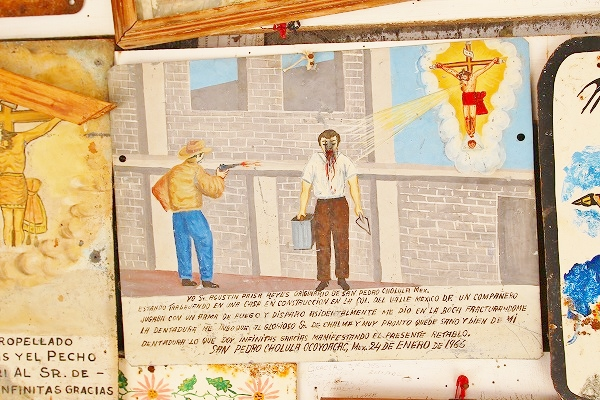 YO Sr. AGUSTIN ARISA REYES ORIGINARIO DE SAN PEDRO CHOLULA MEX.
ESTANDO TRABAJANDO EN UNA CASA EN CONSTRUCCION EN LA COL. DEL VALLE MEXICO DE UN COMPAÑERO
JUGABA CON UN ARMA DE FUEGO Y DISPARO ASIDENTALMENTE ME DIO EN LA BOCA FRACTURANDOME
LA DENTADURA ME INBOQUE AL GLORIOSO Sr. DE CHALMA Y MUY PRONTO QUEDE SANO Y BIEN DE MI
DENTADURA LO QUE DOY INFINITAS GRACIAS MANIFESTANDO EL PRESENTE RETABLO.
SAN PEDRO CHOLULA OCOYOACAC, MEX. 24 DE ENERO DE 1966
ROPELLADO
S Y EL PECHO
RI AL SR. DE-
INFINITAS GRACIAS